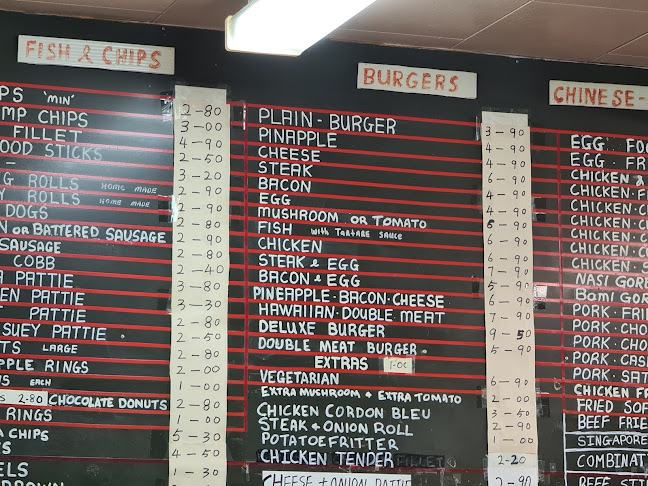 FISH & CHIPS
PS 'MIN' 2-80
MP CHIPS 3-00
FILLET 4-90
OOD STICKS 2-50
- 3-20
G ROLLS HOME MADE 2-90
Y ROLLS HOME MADE 2-90
DOGS 2-80
N OR BATTERED SAUSAGE 2-90
SAUSAGE 2-80
COBB 2-40
A PATTIE 3-80
EN PATTIE 3-30
PATTIE 2-80
SUEY PATTIE 2-50
TS LARGE 2-80
PPLE RINGS 2-00
WS EACH 1-00
S 2-80 CHOCOLATE DONUTS 2-80
RINGS 1-00
A CHIPS 5-30
S 4-50
ELS 1-30
ROWN
BURGERS
PLAIN-BURGER 3-90
PINAPPLE 4-90
CHEESE 4-90
STEAK 6-90
BACON 4-90
EGG 4-90
MUSHROOM OR TOMATO 5-90
FISH WITH TARTARE SAUCE 6-90
CHICKEN 6-90
STEAK & EGG 7-90
BACON & EGG 5-90
PINEAPPLE·BACON·CHEESE 6-90
HAWAIIAN·DOUBLE MEAT 7-90
DELUXE BURGER 9-50
DOUBLE MEAT BURGER 5-90
EXTRAS 1-00
VEGETARIAN 6-90
EXTRA MUSHROOM & EXTRA TOMATO 2-00
CHICKEN CORDON BLEU 3-50
STEAK & ONION ROLL 2-90
POTATOE FRITTER 1-00
CHICKEN TENDER FILLET 2-20
CHEESE + ONION PATTIE 2-90
CHINESE-
EGG FOO
EGG FRI
CHICKEN &
CHICKEN·F
CHICKEN·CH
CHICKEN·C
CHICKEN·C
CHICKEN·C
CHICKEN·S
NASI GORE
BAMI GOR
PORK·FRI
PORK·CHO
PORK·CHO
PORK·CAS
PORK·SAT
CHICKEN FR
FRIED SOF
BEEF FRIE
SINGAPORE
COMBINAT
BEEF STI